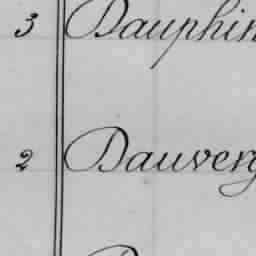 3 Dauphin
2 Dauverg